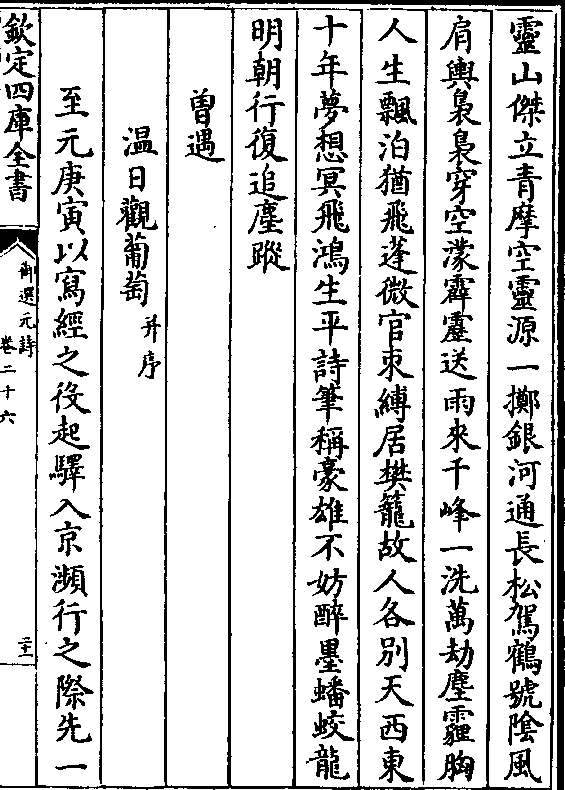 靈山傑立青摩空靈源一擲銀河通長松駕鶴號陰風
肩輿裊裊穿空濛霹靂送雨來千峰一洗萬劫塵霾胸
人生飄泊猶飛蓬微官束縛居樊籠故人各別天西東
十年夢想冥飛鴻生平詩筆稱豪雄不妨醉墨蟠蛟龍
明朝行復追塵蹤
曽遇
温日觀葡萄并序
至元庚寅以寫經之役起驛入京瀕行之際先一
欽定四庫全書
御選元詩
卷二十六
二十一